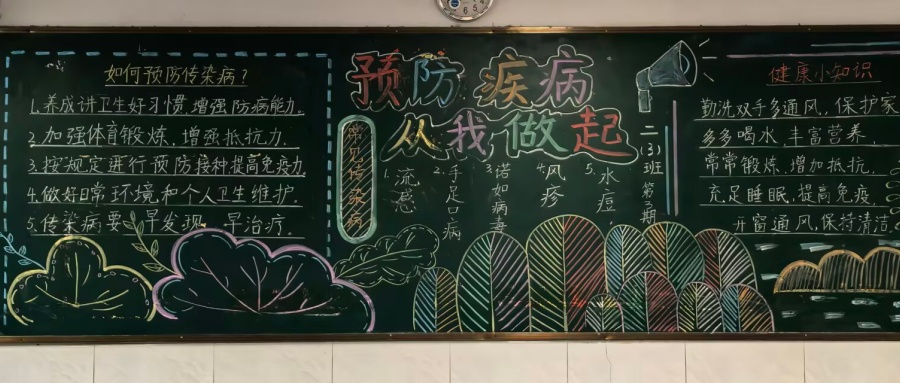 如何预防传染病?
1.养成讲卫生好习惯,增强防病能力.
2.加强体育锻炼.增强抵抗力.
3.按规定进行预防接种提高免疫力
4.做好日常环境和个人卫生维护.
5.传染病要早发现.早治疗.
预防疾病
从我做起
二(3)班第3期
常见传染病
1.流感
2.手足口病
3.诺如病毒
4.风疹
5.水痘
健康小知识
勤洗双手多通风,保护家
多多喝水,丰富营养.
常常锻炼.增加抵抗.
充足睡眠,提高免疫
开窗通风,保持清洁.